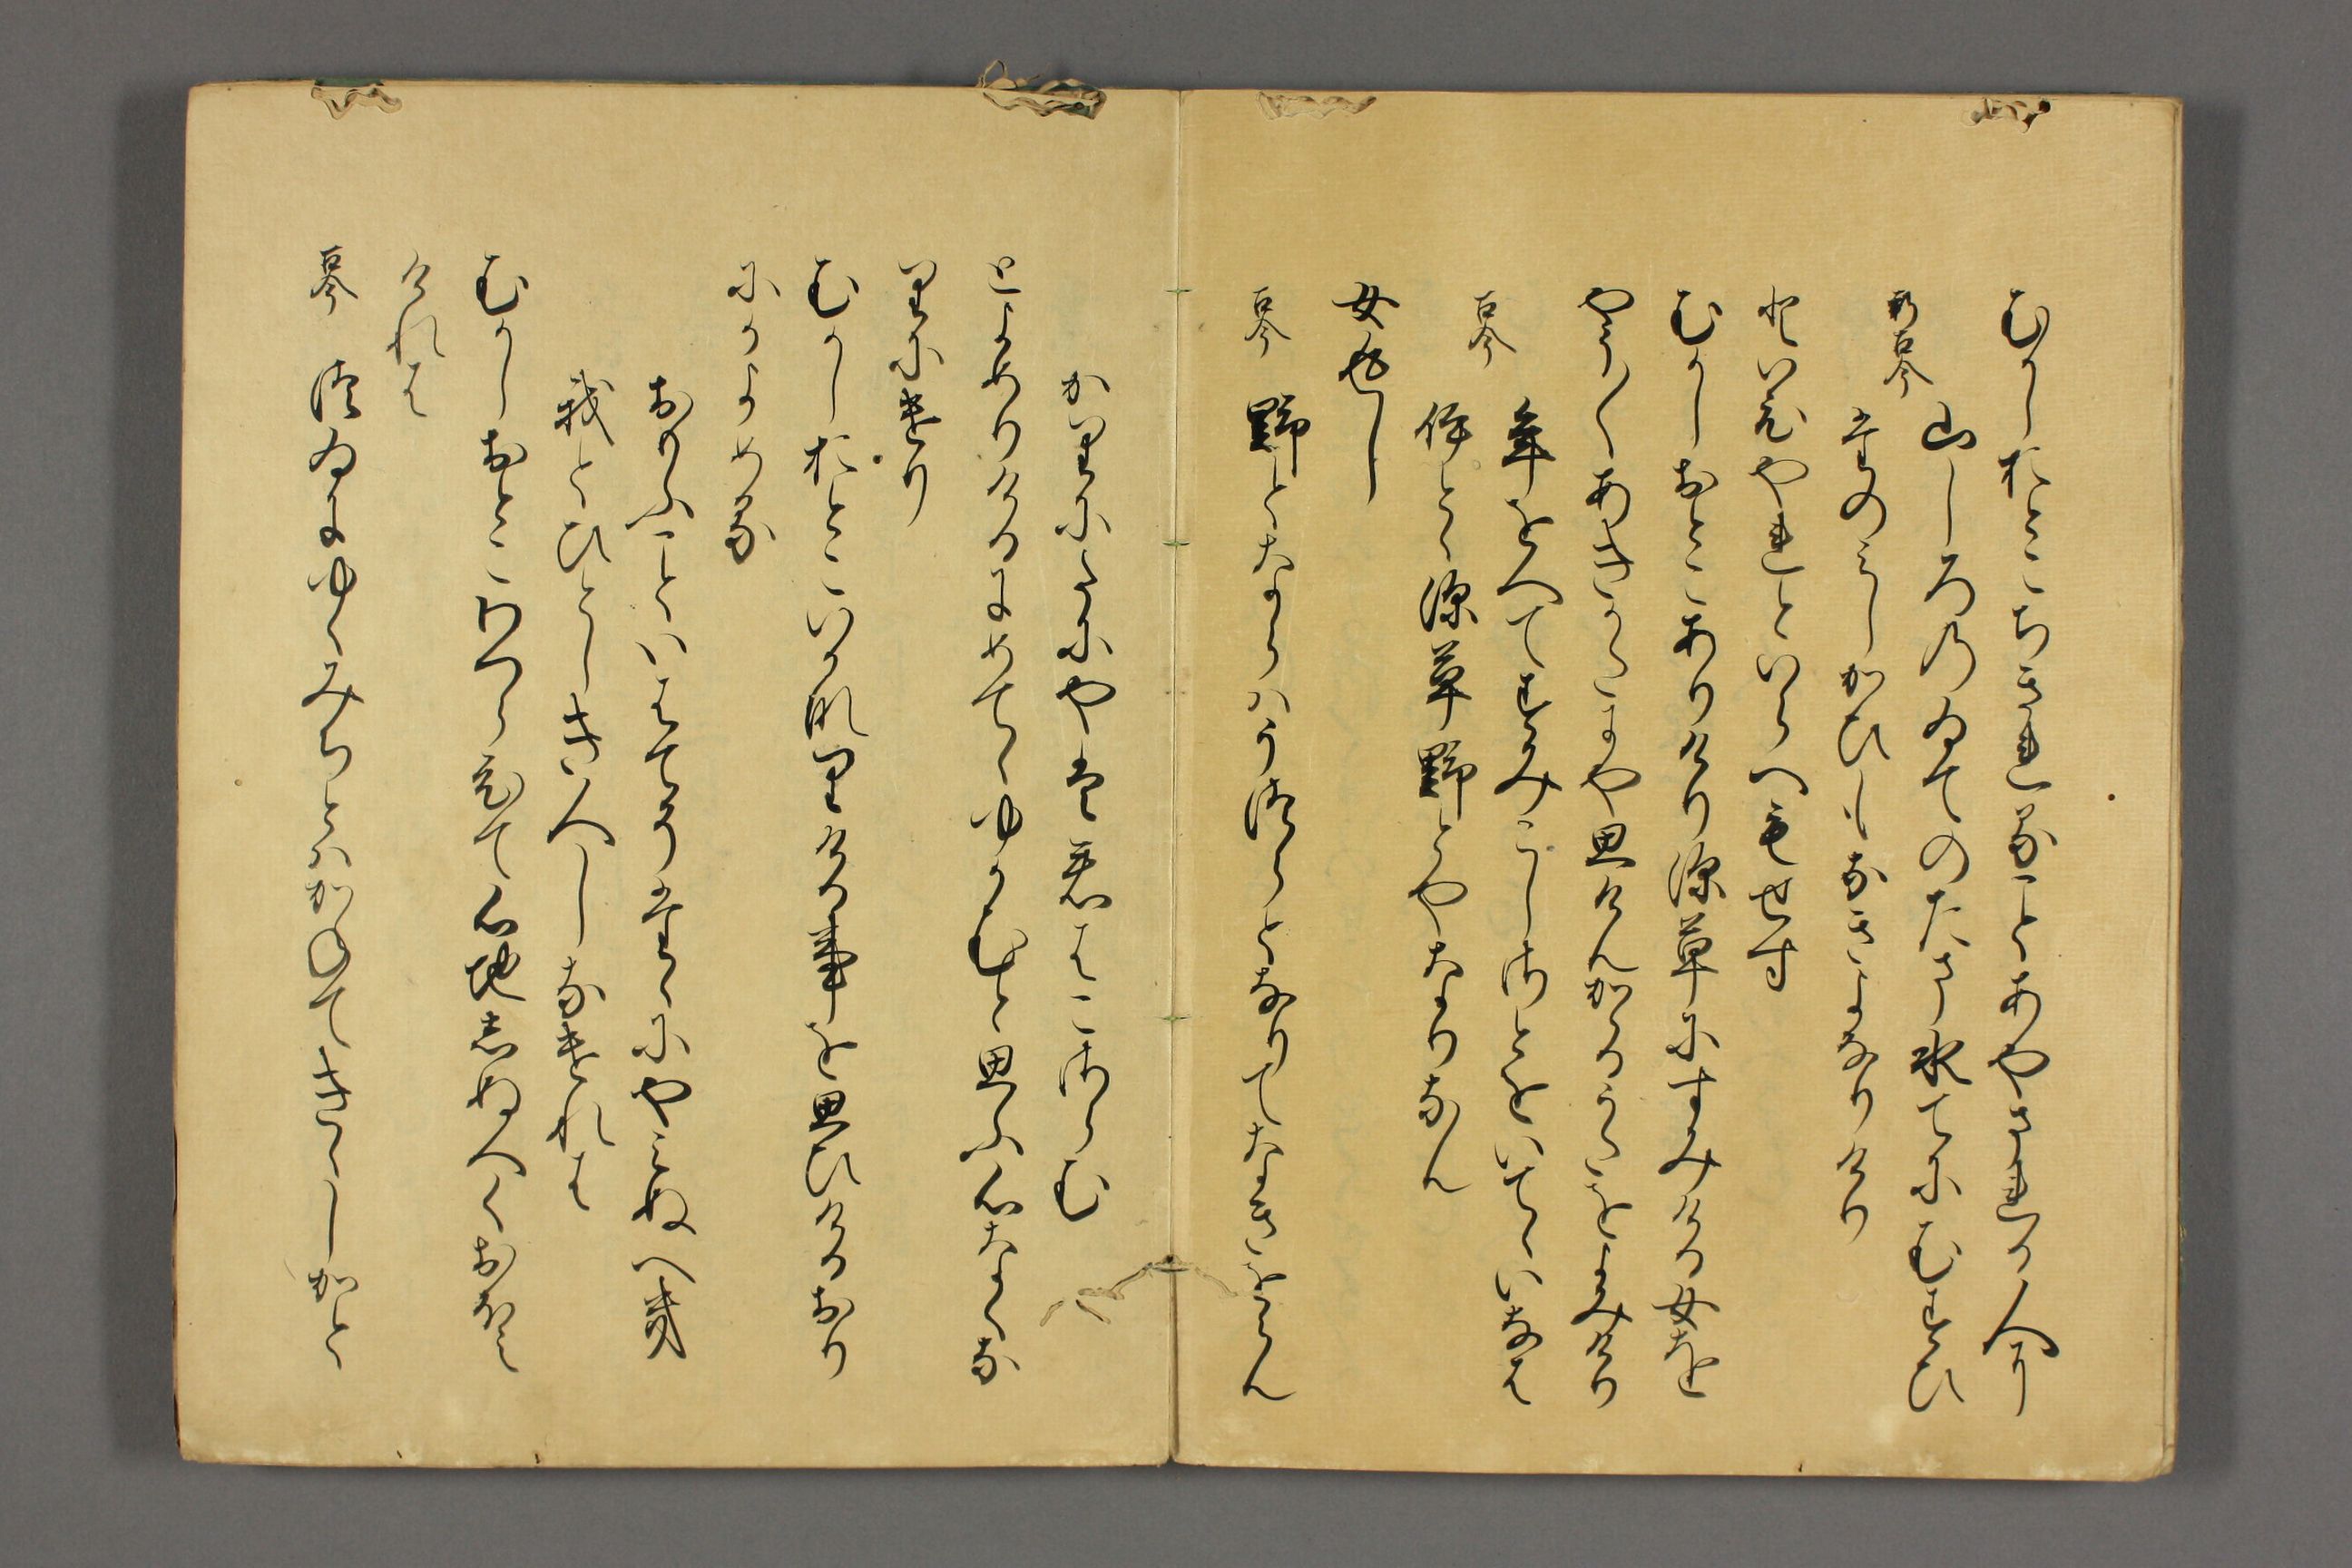 むかしおとこちきれることあやまれる人に
新古今
山しろのゐてのたま水てにむすひ
たのみしかひもなきよなりけり
といひやれといらへもせす
むかしおとこありけり深草にすみける女を
やう〱あきかたにや思けんかゝるうたをよみけり
古今
年をへてすみこしさとをいてゝいなは
いとゝ深草野とやなりなん
女返し
古今
野とならはうつらとなりてなきをらん
かりにたにやは君はこさらむ
とよめりけるにめてゝゆかむと思ふ心なくな
りにけり
むかしおとこいかなりける事を思ひけるおり
にかよめる
おもふこといはてそたゝにやみぬへき
我とひとしき人しなけれは
むかしおとこわつらひて心地しぬへくおほえ
けれは
古今
つゐにゆくみちとはかねてきゝしかと